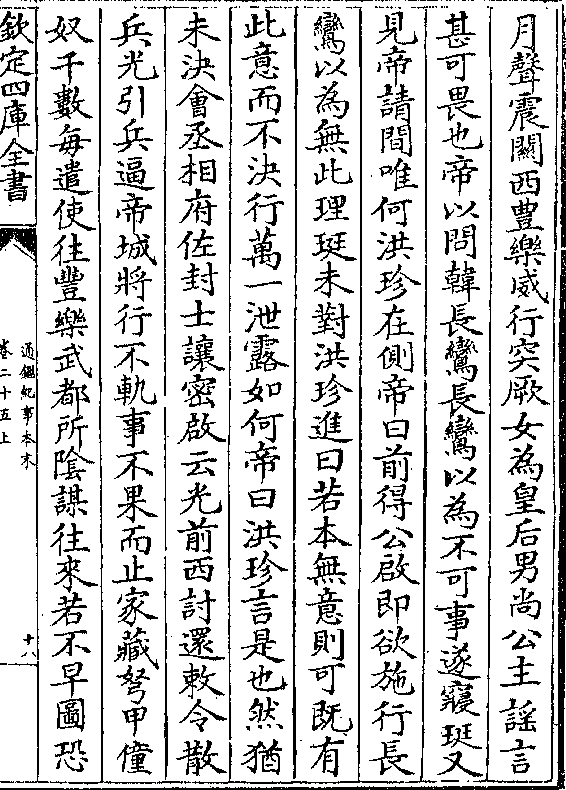 月聲震關西豐樂威行突厥女為皇后男尚公主謡言
甚可畏也帝以問韓長鸞長鸞以為不可事遂寢珽又
見帝請間唯何洪珍在側帝曰前得公啟即欲施行長
鸞以為無此理珽未對洪珍進曰若本無意則可既有
此意而不決行萬一泄露如何帝曰洪珍言是也然猶
未決會丞相府佐封士讓密啟云光前西討還敕令散
兵光引兵逼帝城將行不軌事不果而止家藏弩甲僮
奴千數每遣使往豐樂武都所陰謀往來若不早圖恐
欽定四庫全書
通鑑紀事本末
卷二十五上
十八